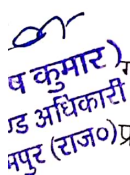 ष कुमार)
ण्ड अधिकारी
मपुर (राज०) प्र